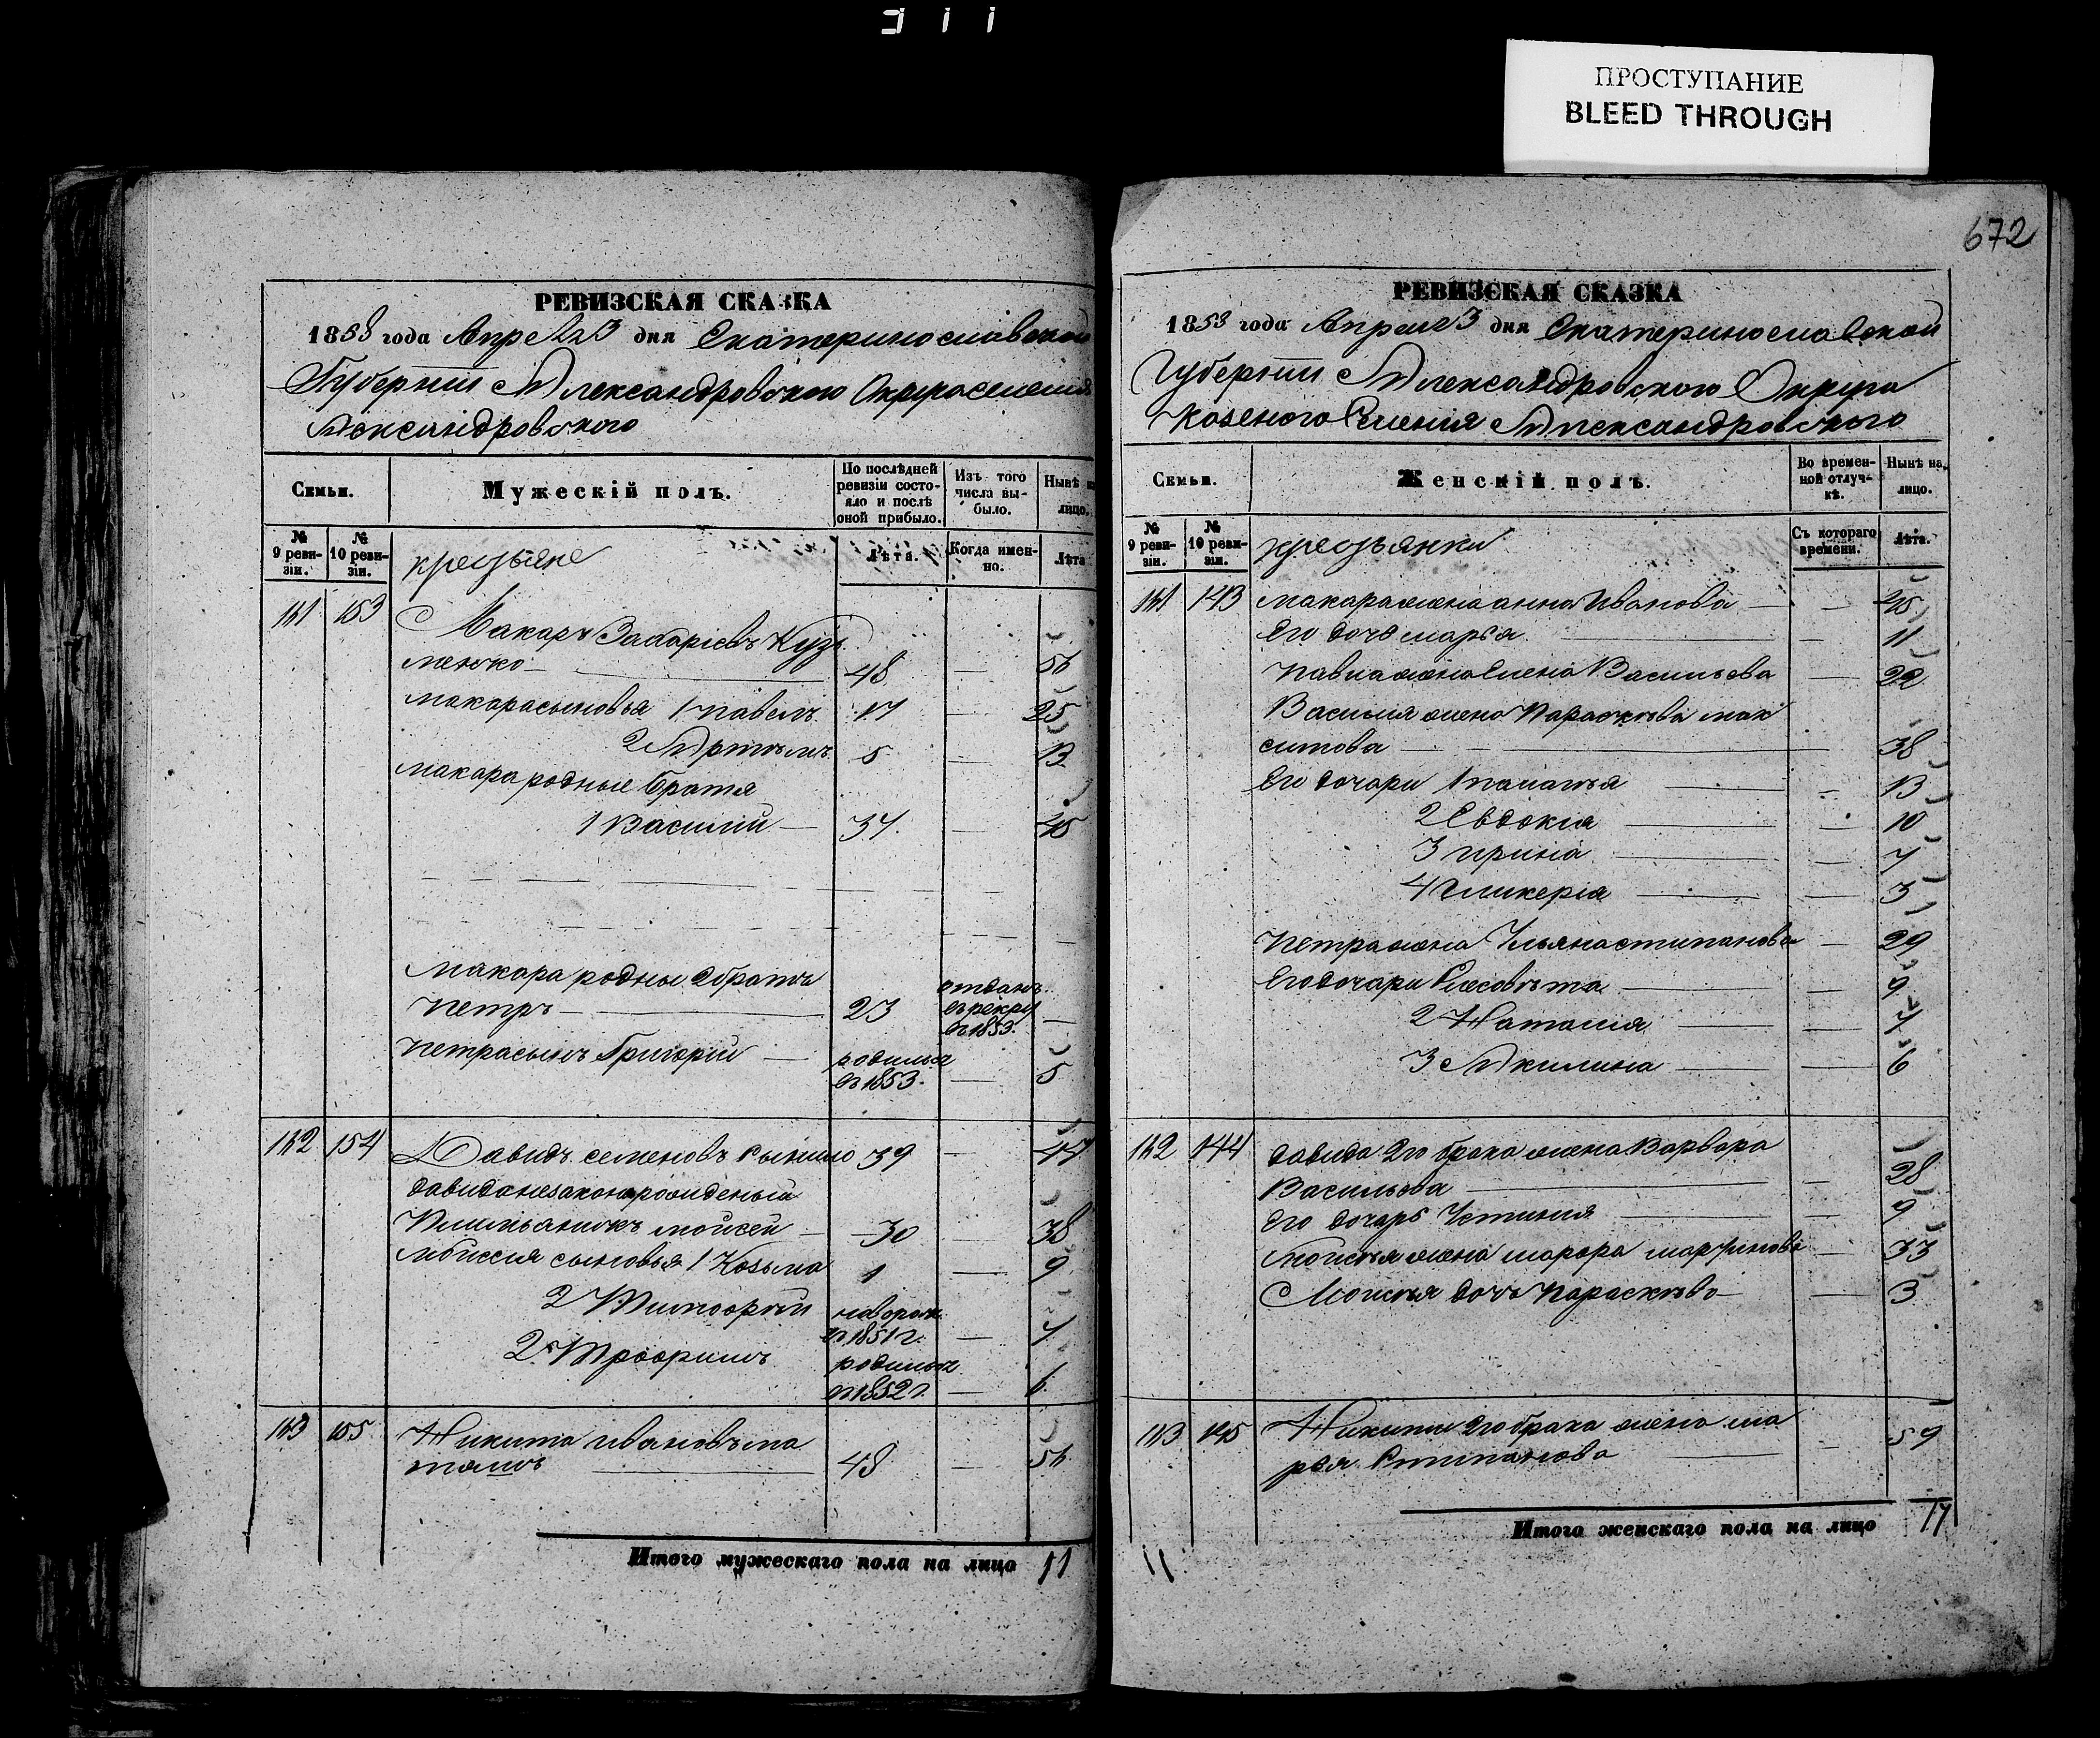 ПРОСТУПАНИЕ
BLEED THROUGH
672
РЕВИЗСКАЯ СКАЗКА
1858 года Апреля 3 дня Екатеринославской
Губернии Александровского Округа селения
Александровского
Семьи.
Мужескій полъ.
По послѣдней ревизіи состояло и послѣ оной прибыло.
Изъ того числа выбыло.
Нынѣ на лицо.
№ 9 ревизіи.
№ 10 ревизіи.
крестьяне
Лѣта.
Когда именно.
Лѣта
153
Макаръ Захаріевъ Кузь
менко 48
макара сыновья 1 павелъ 17 25
2 Артемъ 5 13
макара родные братя
1 Василий 37 45
макара родные 2 братъ
петръ 23 отданъ в рекру в 1853.
петра сынъ Григорий родился в 1853. 5
154 Давидъ семеновъ 39 47
давида незаконорожденый
моисей 30 38
моисея сыновья 1 Козьма 1 9
2 Тимофей новорож. в 1851 г. 7
2 Трофимъ родился в 1852 г. 6
155 Никита ивановъ
48
Итого мужескаго пола на лицо 11
РЕВИЗСКАЯ СКАЗКА
1858 года Апреля 3 дня Екатеринославской
Губернии Александровского Округа
Казеного Селения Александровского
Семьи.
Женскій полъ.
Во временной отлучкѣ.
Нынѣ на лицо.
№ 9 ревизіи.
№ 10 ревизіи.
крестьянки
Съ котораго времени.
Лѣта.
143 макара жена анна Иванова 45
Его дочь марья 11
павла жена Елена Васильева 22
Василия жена Параскева мак
симова 38
Его дочери 1 палагея 13
2 Евдокия 10
3 ирина 7
4 Гликерія 3
Петра жена Ульяна степанова 29
Его дочери Елисовета 9
2 Наталия 7
3 Акилина 6
144 давида 2го брака жена Варвара
Васильева 28
Его дочерь Устиния 9
Моисея жена марфа мартинова 33
Моисея дочь Параскева 3
145 Никиты 2го брака жена ма
рья Степанова 59
Итого женскаго пола на лицо 17
11